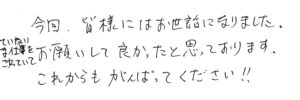 今回、皆様にはお世話になりました。
ていねいな仕事をこれていて
お願いして良かったと思っております。
これからもがんばってください!!